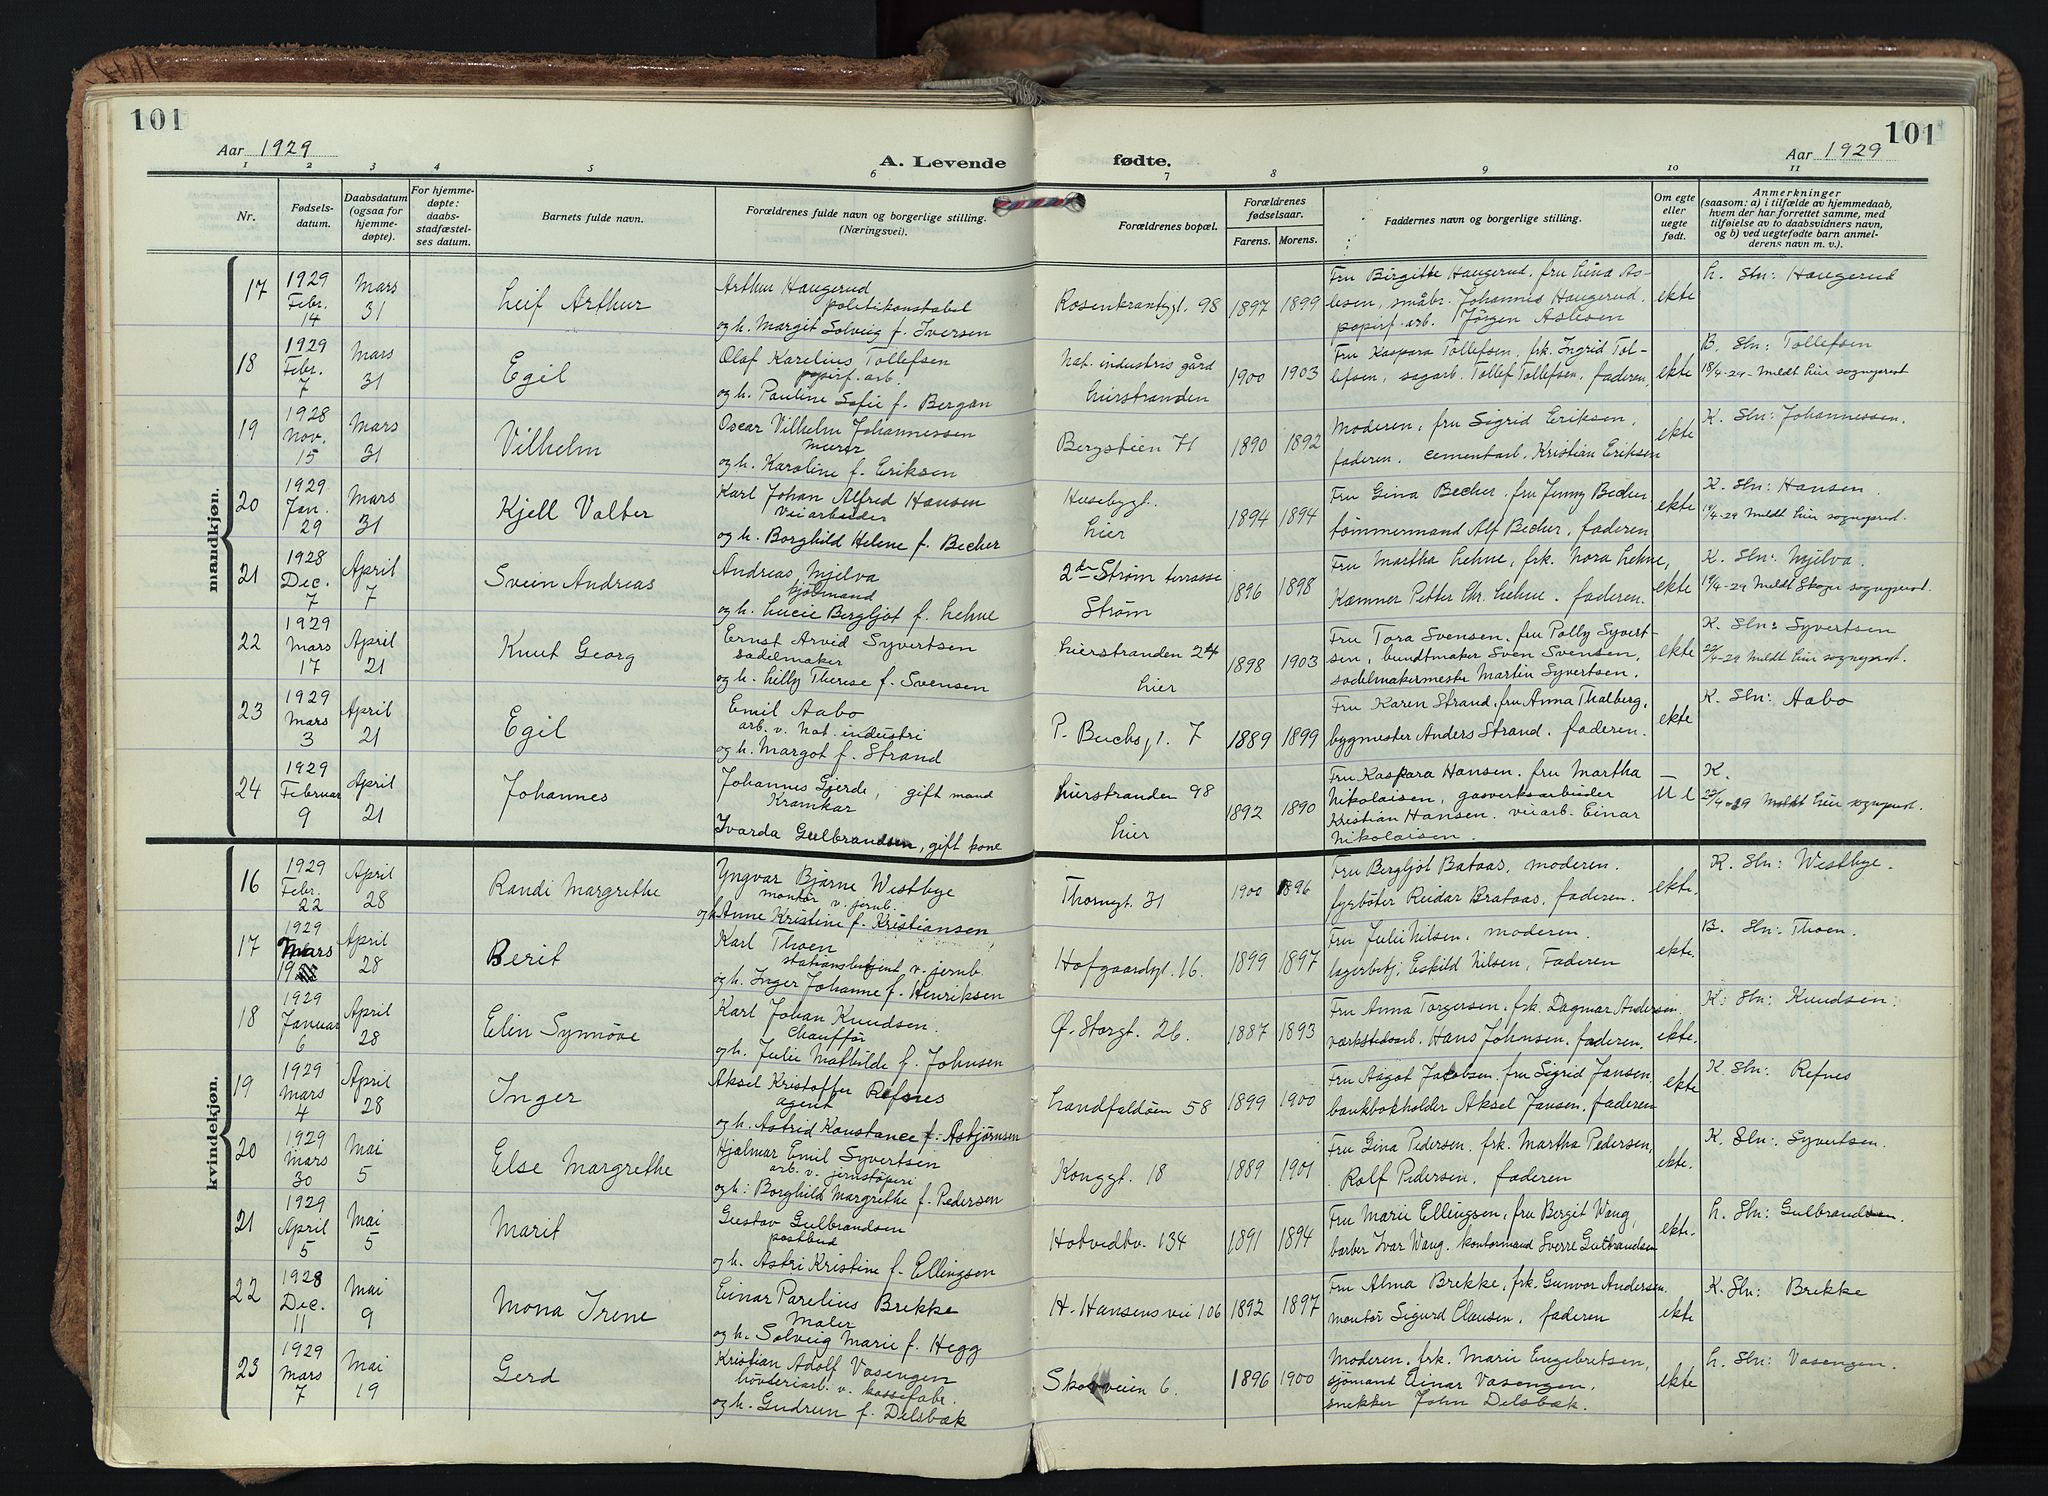 101
101
Aar 1929
A. Levende
fødte.
Aar 1929
1 2 3 4 5 6 7 8 9 10 11
Nr.
Fødsels-
datum.
Daabsdatum
(ogsaa for
hjemme-
døpte).
For hjemme-
døpte:
daabs-
stadfæstel-
ses datum.
Barnets fulde navn.
Forældrenes fulde navn og borgerlige stilling.
(Næringsvei).
Forældrenes bopæl.
Forældrenes
fødselsaar.
Farens. Morens.
Faddernes navn og borgerlige stilling.
Om egte
eller
uegte
født.
Anmerkninger
(saasom: a) i tilfælde av hjemmedaab,
hvem der har forrettet samme, med
tilføielse av to daabsvidners navn,
og b) ved uegtefødte barn anmel-
derens navn m. v.).
mandkjøn.
17
1929
Febr.
14
Mars
31
Leif Arthur
Arthur Haugerud
politikonstabel
og h. Margit Solveig f. Iversen
Rosenkrantzgt. 98
1897 1899
Fru Birgitte Haugerud, fru Lina As-
lesen, småbr. Johannes Haugerud,
papirf. arb. Jörgen Aslesen
ekte
L. Stn: Haugerud
18
1929
Febr.
7
Mars
31
Egil
Olaf Karelius Tollefsen
papirf. arb.
og h. Pauline Sofie f. Bergan
Nat. industris gård
Lierstranden
1900 1903
Fru Kaspara Tollefsen, frk. Ingrid Tol-
lefsen, sagarb. Tollef Tollefsen, faderen,
ekte
B. Stn: Tollefsen
18/4-29 Meldt Lier sogneprest
19
1928
Nov.
15
Mars
31
Vilhelm
Oscar Vilhelm Johannessen
murer
og h. Karoline f. Eriksen
Bergstien 71
1890 1892
Moderen, fru Sigrid Eriksen,
faderen, cementarb. Kristian Eriksen
ekte
K. Stn: Johannessen.
20
1929
Jan.
29
Mars
31
Kjell Valter
Karl Johan Alfred Hansen
veiarbeider
og h. Borghild Helene f. Becher
Husebygt.
Lier
1894 1894
Fru Gina Becher, fru Jenny Becher
tömmermand Alf Becher, faderen
ekte
K. Stn: Hansen.
19/4-29 Meldt Lier sogneprest.
21
1928
Dec.
7
April
7
Svein Andreas
Andreas Mjelva
sjömand
og h. Lucie Bergljot f. Lehne
2den Strøm terrasse
Strøm
1896 1898
Fru Martha Lehne, frk. Nora Lehne,
Kæmner Petter Chr. Lehne, faderen.
ekte
K. Stn: Mjelva.
19/4-29 Meldt Skoger sogneprest.
22
1929
Mars
17
April
21
Knut Georg
Ernst Arvid Syvertsen
sadelmaker
og h. Lilly Therese f. Svensen
Lierstranden 24
Lier
1898 1903
Fru Tora Svensen, fru Polly Syvert-
sen, bundtmaker Sven Svensen,
sadelmakermester Martin Syvertsen.
ekte
K. Stn: Syvertsen
22/4-29 Meldt Lier sogneprest.
23
1929
Mars
3
April
21
Egil
Emil Aabo
arb. v. Nat. industri
og h. Margot f. Strand
P. Buchs g. 7
1889 1899
Fru Karen Strand, fru Anna Thalberg,
bygmester Anders Strand, faderen.
ekte
K. Stn: Aabo
24
1929
Februar
9
April
21
Johannes
Johannes Gjerde, gift mand
Kramkar
Ivarda Gulbrandsen, gift kone
Lierstranden 98
Lier
1892 1890
Fru Kaspara Hansen, fru Martha
Nikolaisen, gasverksarbeider
Kristian Hansen, veiarb. Einar
Nikolaisen.
K.
22/4-29 Meldt Lier sogneprest.
kvindekjøn.
16
1929
Febr.
22
April
28
Randi Margrethe
Yngvar Bjarne Westbye
montör v. jernb.
og h. Anne Kristine f. Kristiansen,
Thornegt. 31
1900 1896
Fru Bergljot Bataas, moderen.
fyrböter Reidar Brataas, faderen.
ekte.
K. Stn: Westbye.
17
1929
Mars
19
April
28
Berit
Karl Thoen
stationsbetjent v. jernb.
og h. Inger Johanne f. Henriksen
Hofgaardsgt. 16.
1899 1897
Fru Julie Nilsen, moderen.
lagerbetj. Eskild Nilsen, Faderen
ekte.
B. Stn: Thoen.
18
1929
Januar
6
April
28
Elin Synnöve
Karl Johan Knudsen.
Chaufför
og h. Julie Mathilde f. Johnsen
Ø. Storgt. 26.
1887 1893
Fru Anna Torgersen, frk. Dagmar Andersen.
værkstedsarb. Hans Johnsen, faderen.
ekte.
K. Stn: Knudsen.
19
1929
Mars
4
April
28
Inger
Aksel Kristoffer Refsnes
agent
og h. Astrid Konstance f. Asbjørnsen
Landfaldöen 58
1899 1900
Fru Aagot Jacobsen, fru Sigrid Jansen,
bankbokholder Aksel Jansen, faderen
ekte
K. Stn: Refnes
20
1929
Mars
30
Mai
5
Else Margrethe
Hjalmar Emil Syvertsen
arb. v. jernstöperi
og h: Borghild Margrethe f. Pedersen
Konggt. 18
1889 1901
Fru Gina Pedersen, frk. Martha Pedersen,
Rolf Pedersen, faderen
ekte.
K. Stn: Syvertsen.
21
1929
April
5
Mai
5
Marit
Gustav Gulbrandsen
postbud
og h. Astri Kristine f. Ellingsen
Hotvedtv. 134
1891 1894
Fru Marie Ellingsen, fru Bergit Wang,
barber Ivar Wang, kontormand Sverre Gulbrandsen
ekte.
L. Stn: Gulbrandsen.
22
1928
Dec.
11
Mai
9
Mona Irene
Einar Parelius Brekke
Maler
og h. Solveig Marie f. Hegg
H. Hansens vei 106
1892 1897
Fru Alma Brekke, frk. Gunvor Andersen.
montör Sigurd Clausen, faderen
ekte
K. Stn: Brekke
23
1929
Mars
7
Mai
19
Gerd
Kristian Adolf Vasengen
hövleriarb. v. kassefabr.
og h. Gudrun f. Delsbæk
Skogveien 6.
1896 1900
Moderen, frk. Marie Engebretsen,
sjömand Einar Vasengen,
snekker John Delsbæk.
ekte
L. Stn: Vasengen.